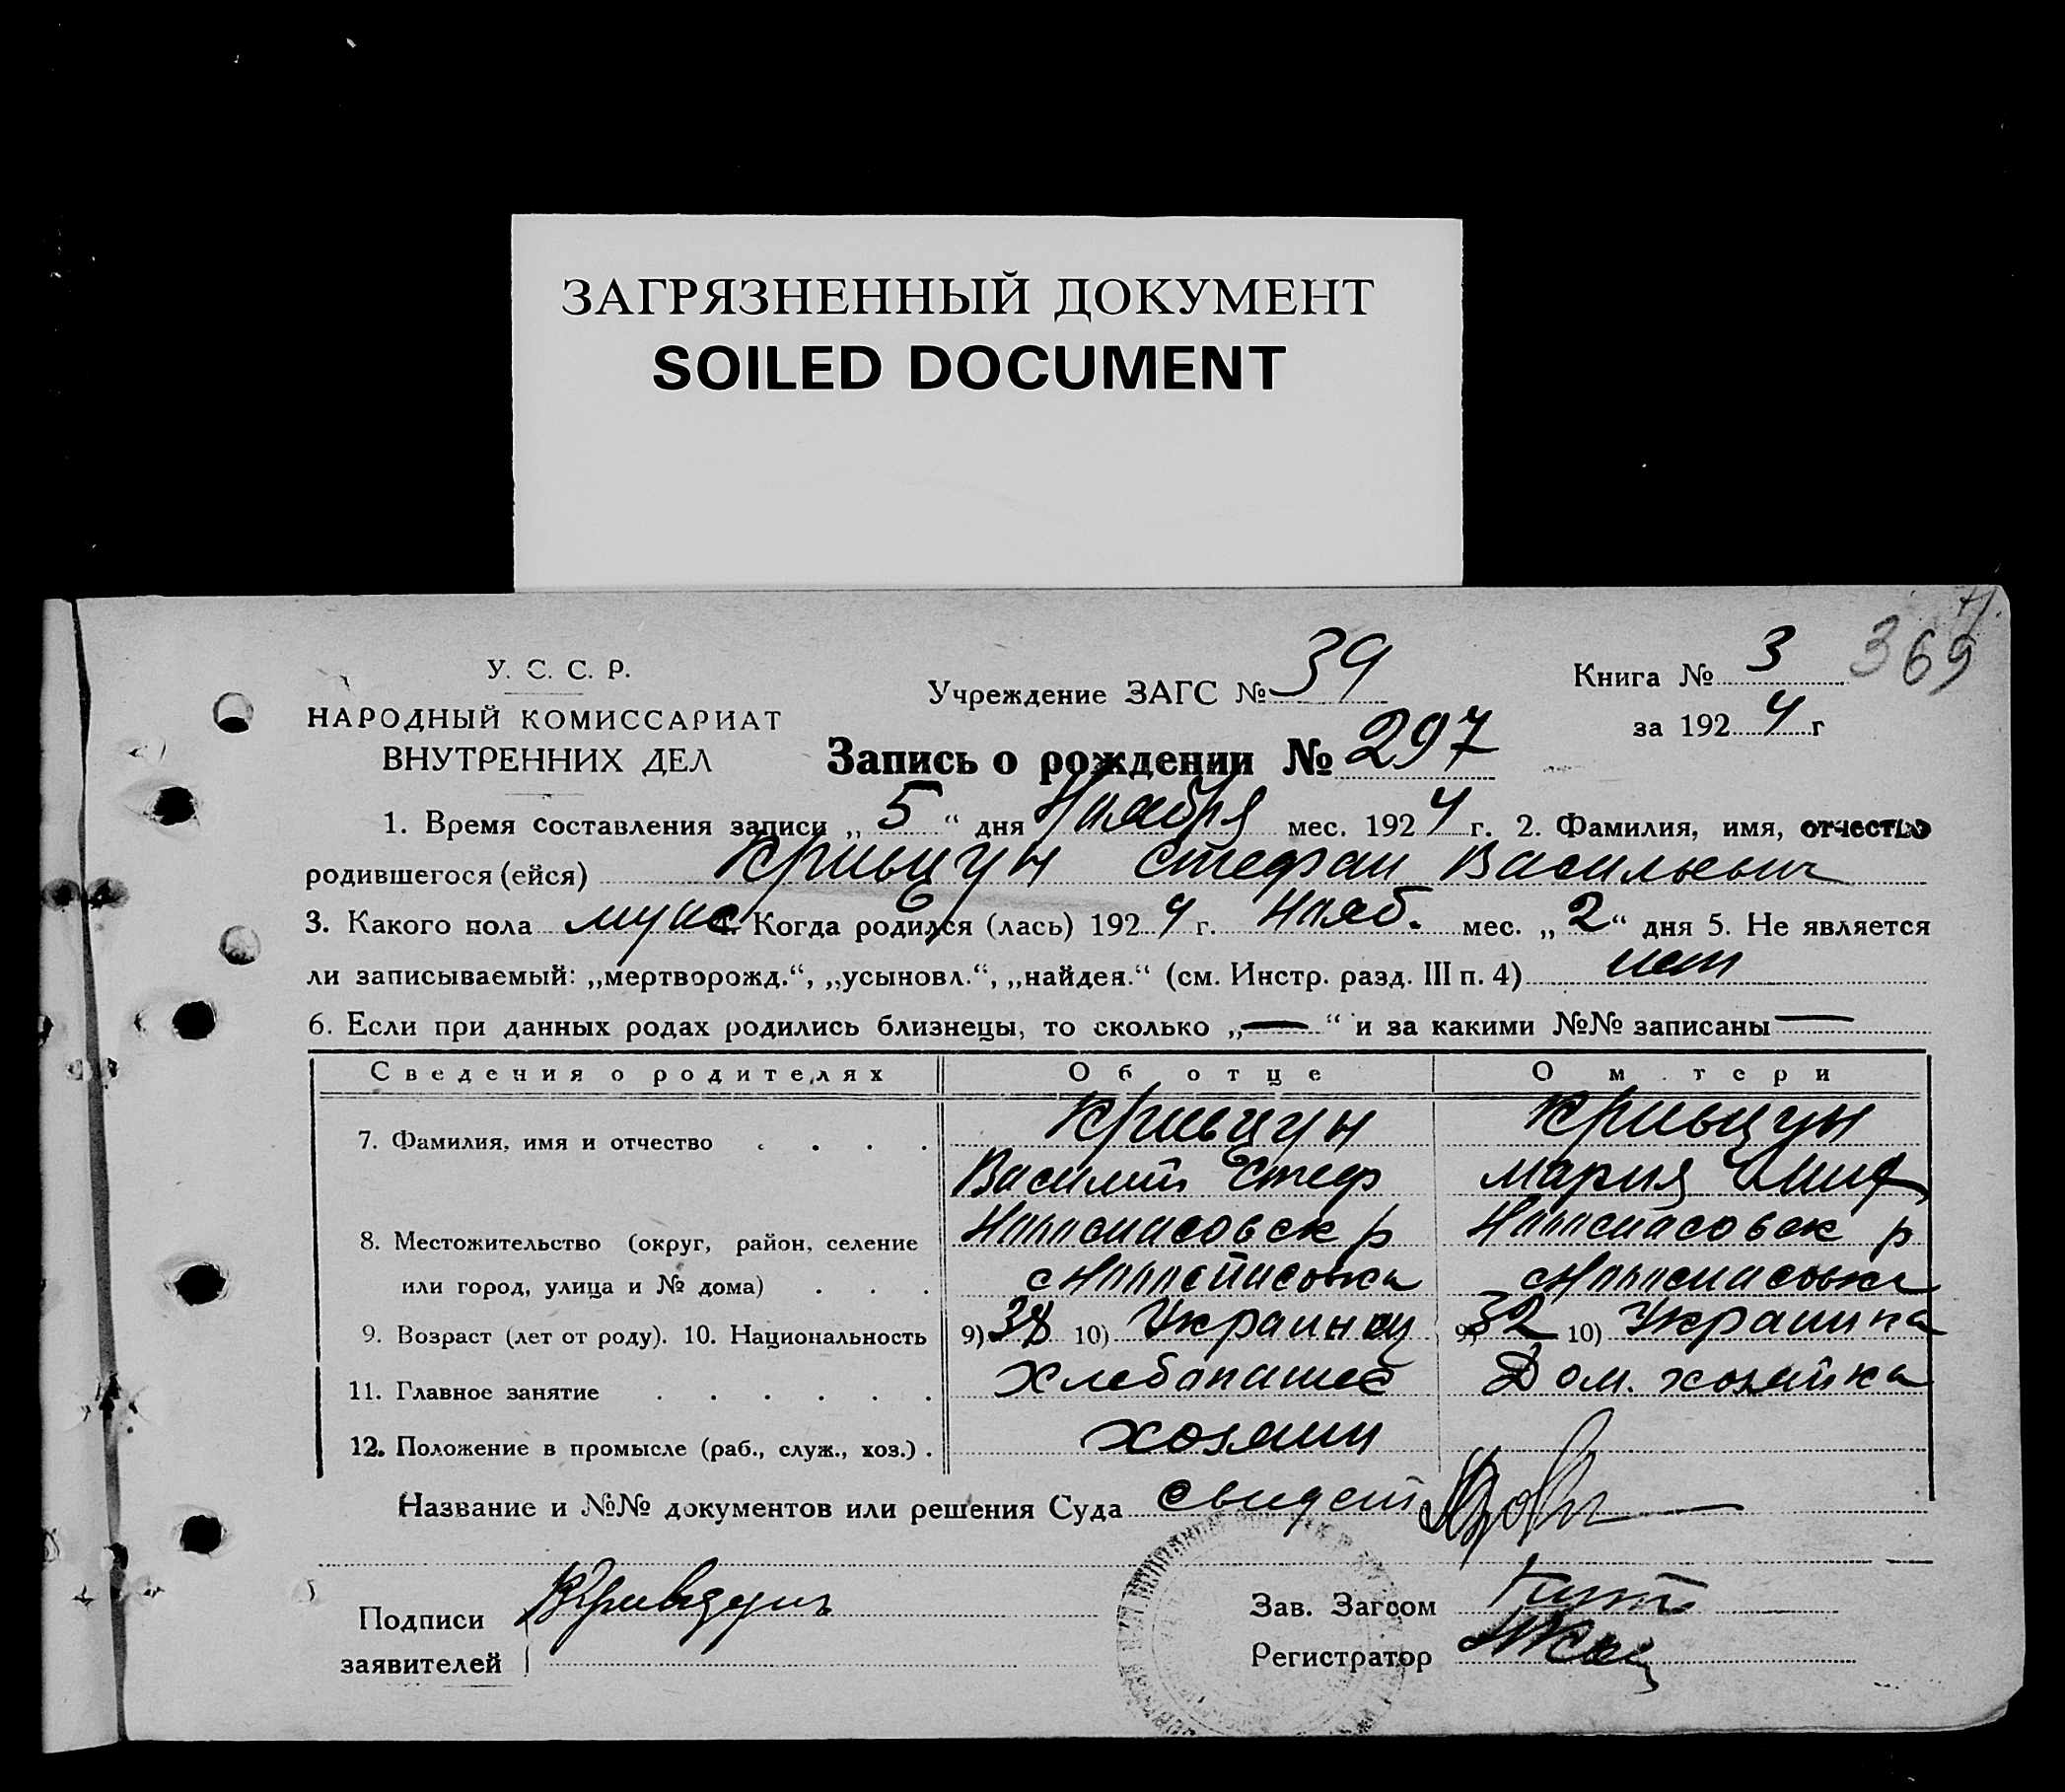 ЗАГРЯЗНЕННЫЙ ДОКУМЕНТ
SOILED DOCUMENT
369
У. С. С. Р.
НАРОДНЫЙ КОМИССАРИАТ
ВНУТРЕННИХ ДЕЛ
Учреждение ЗАГС № 39
Книга № 3
за 1924 г
Запись о рождении № 297
1. Время составления записи „ 5 “ дня Ноября мес. 1924 г. 2. Фамилия, имя, отчество
родившегося (ейся) Кривцун Стефан Васильевич
3. Какого пола муж 4. Когда родился (лась) 1924 г. Нояб. мес. „ 2 “ дня 5. Не является
ли записываемый: „мертворожд.“, „усыновл.“, „найден.“ (см. Инстр. разд. III п. 4) нет
6. Если при данных родах родились близнецы, то сколько „ — “ и за какими №№ записаны —
Сведения о родителях Об отце О м тери
7. Фамилия, имя и отчество . . . . Кривцун Кривцун
Василий Стеф Мария
8. Местожительство (округ, район, селение р р
или город, улица и № дома) . . . с с
9. Возраст (лет от роду). 10. Национальность 9) 38 10) Украинец 9) 32 10) Украинка
11. Главное занятие . . . . . . Хлебопашес Дом. хозяйка
12. Положение в промысле (раб., служ., хоз.) . хозяин
Название и №№ документов или решения Суда свидет
Подписи Кривцун
заявителей
Зав. Загсом
Регистратор